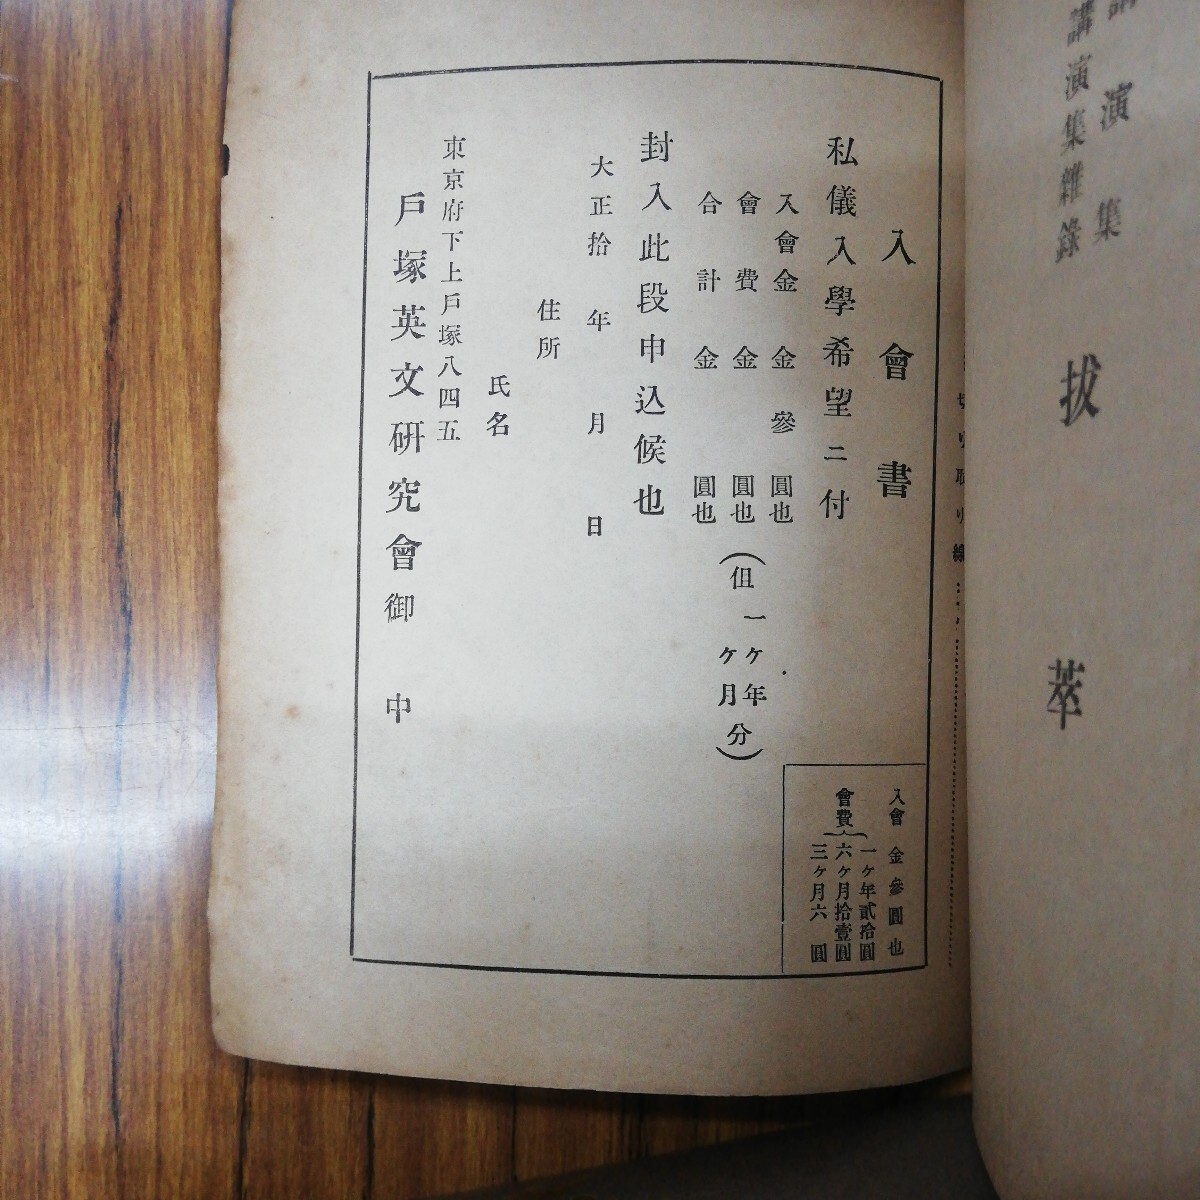 講演集
講演集雜錄
拔萃
切リ取リ線
入會書
私儀入學希望ニ付
入會金 金參 圓也
會費 金 圓也(但一ヶ年 ヶ月分)
合計 金 圓也
封入此段申込候也
大正拾 年 月 日
住所
氏名
東京府下上戶塚八四五
戶塚英文硏究會御中
入會金參圓也
會費
一ヶ年貳拾圓
六ヶ月拾壹圓
三ヶ月六圓